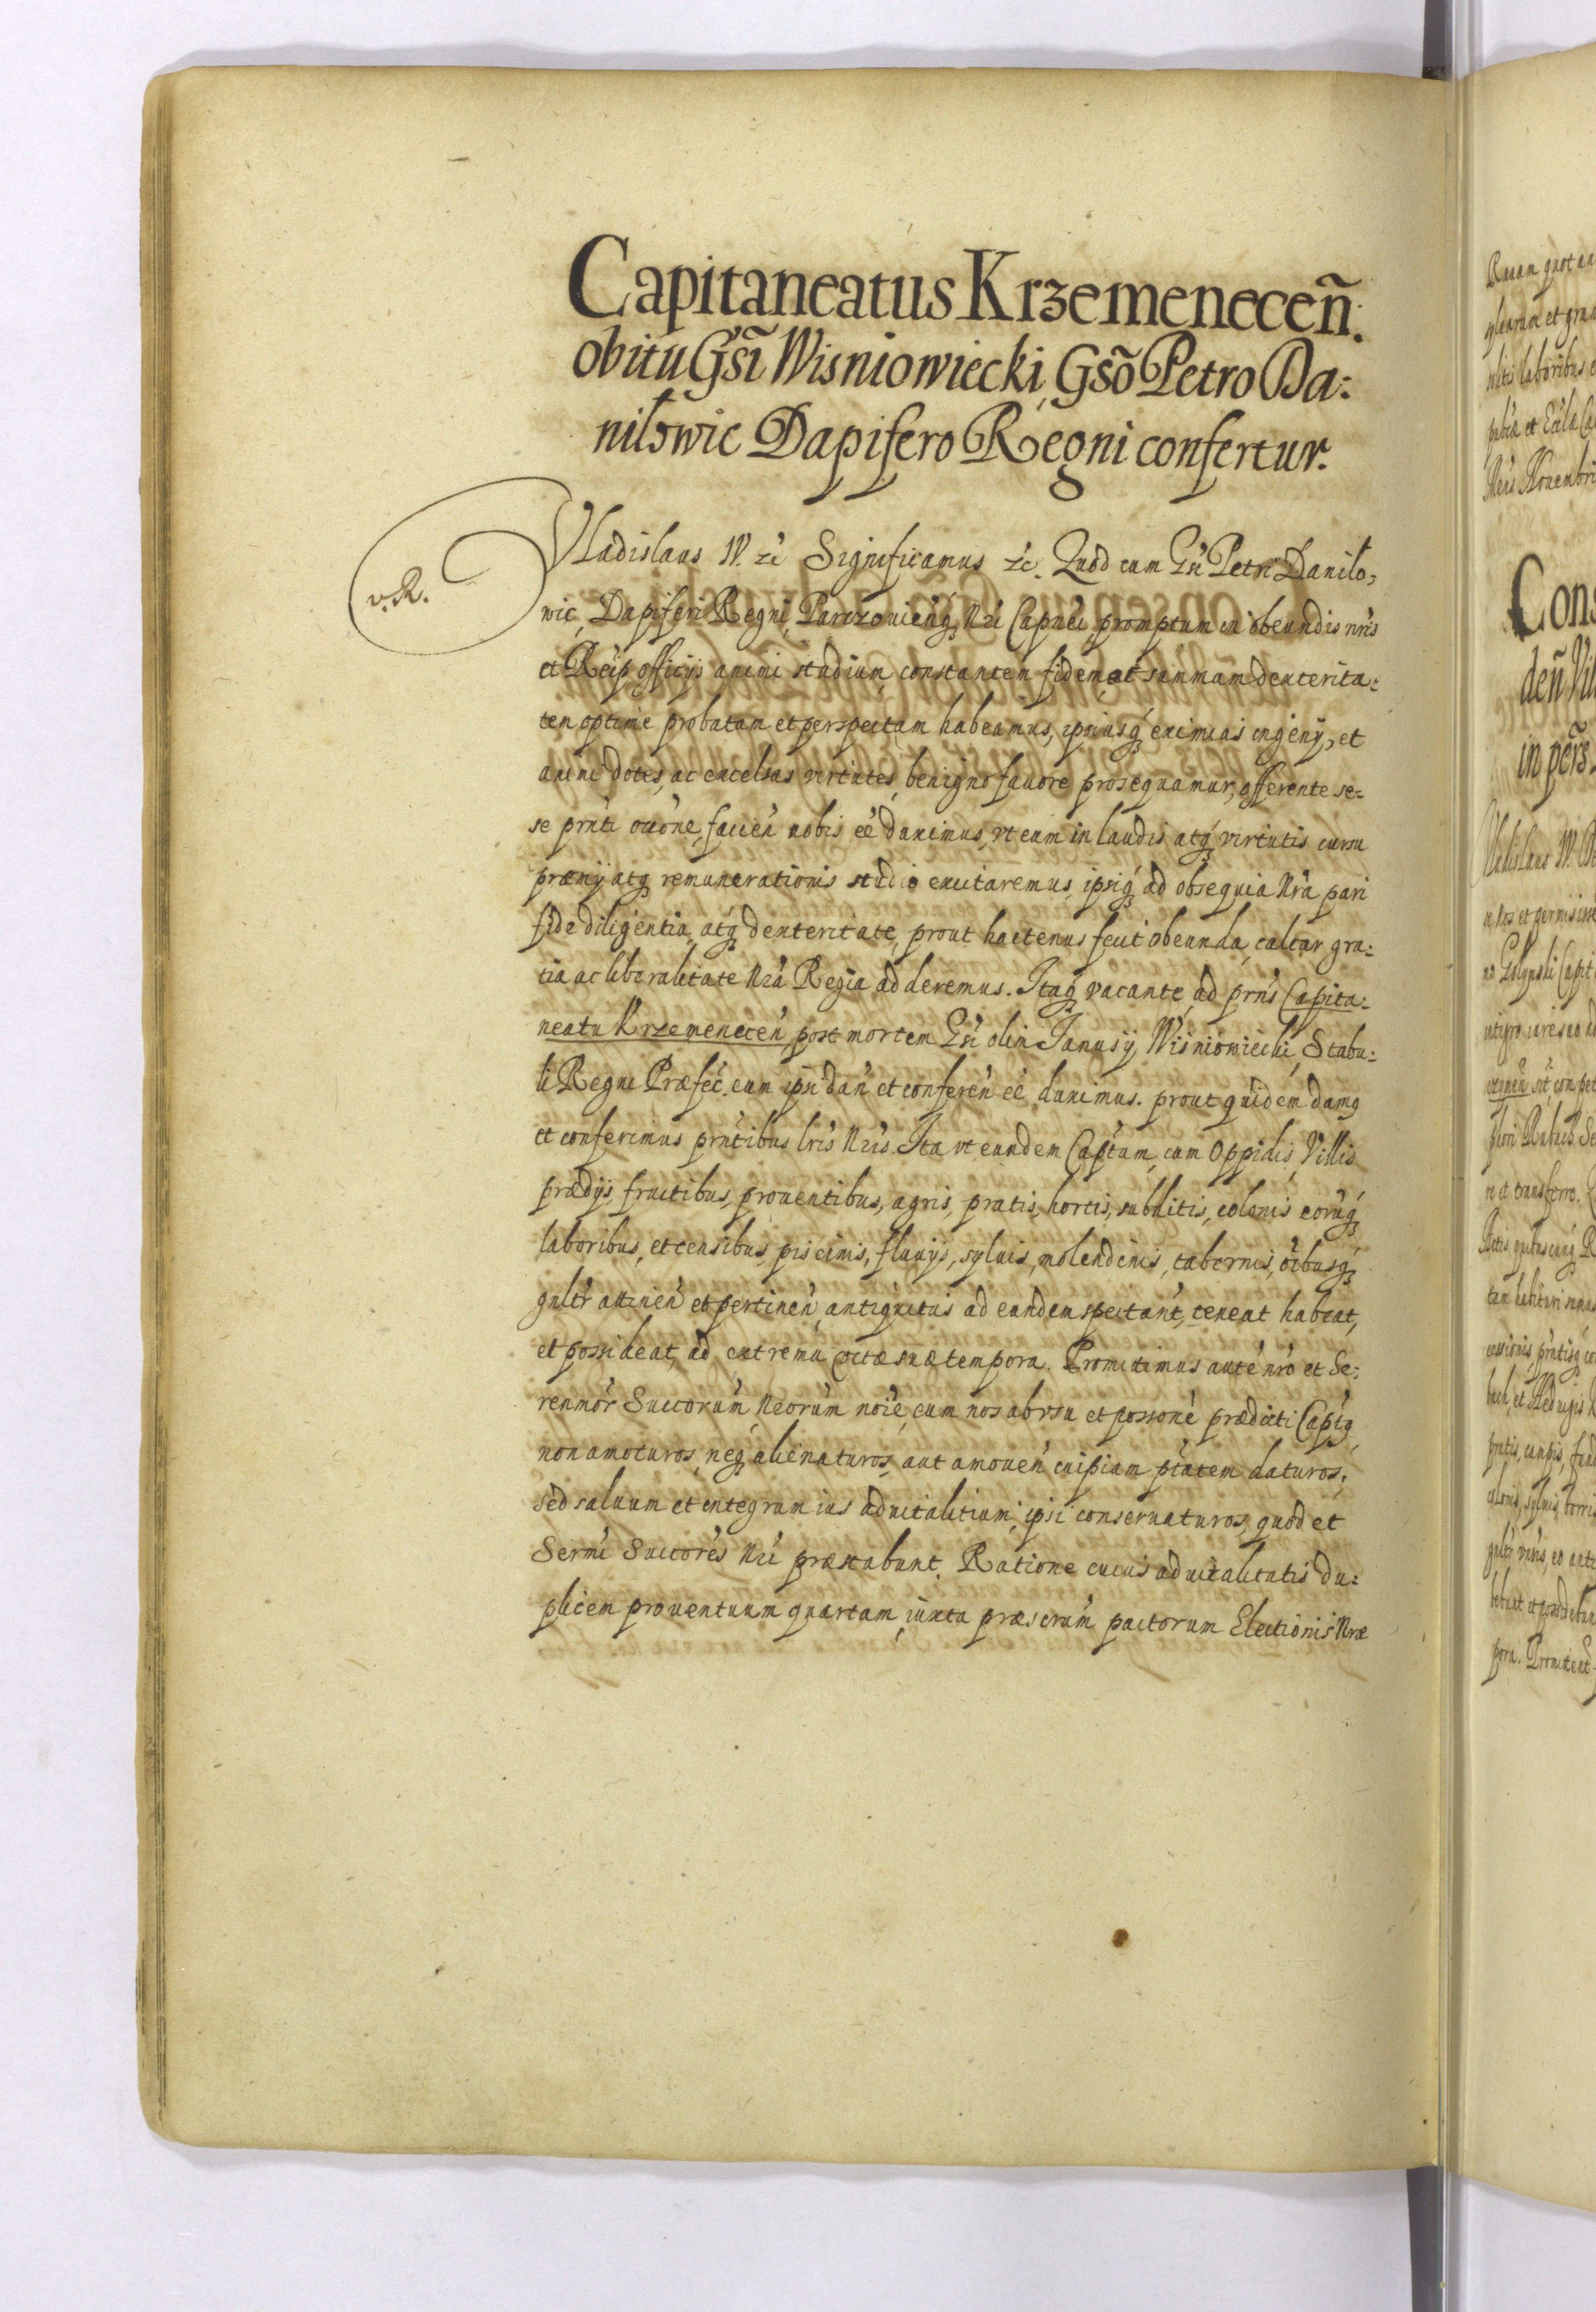 Capitaneatus Krzemenecen̄.
obitu Gsī Wisniowiecki, Gsō Petro Da:
nilowic Dapifero Regni confertur.
v. R.
Vladislaus IV. zc Significamus zc. Quod cum Gsi Petri Danilo,
wic, Dapiferi Regni, Parczouieńq; Nri Capnei, promptum in obeundis nris
et Reip officijs animi studium, constantem fidem, et summam dexterita:
tem optime probatam et perspectam habeamus, ipsiusq; eximias ingenij, et
animi dotes, ac excelsas virtutes, benigno fauore prosequamur, offerente se-
se prnti occone, facień nobis eé duximus, vt eum in laudis atq; virtutis cursu
præmij atq; remunerationis studio excitaremus, ipsiq; ad obsequia Nra pari
fide diligentia, atq; dexteritate, prout hactenus fecit obeunda, calcar gra:
tia ac liberalitate Nra Regia adderemus. Itaq; vacante, ad prns Capita:
neatu Krzemenecen, post mortem Gsi olim Janusij Wisniowiecki, Stabu:
li Regni Præfec. eum ipsi dań et conferen eé duximus. prout quidem damq
et conferimus prntibus lris Nris. Ita vt eundem Captum, cum Oppidis, Villis
prædijs, fructibus, prouentibus, agris, pratis, hortis, subditis, colonis, eorūq;
laboribus, et censibus, piscinis, fluuijs, syluis, molendinis, tabernis, oibusq;
gnltr attineń et pertineń, antiquitus ad eundem spectant, teneat habeat,
et possideat, ad extrema vitæ suæ tempora. Promittimus auté nro et Se:
renmor Succorum Nrorum noie, eum nos ab vsu et possone prædicti Captq
non amoturos, neq; alienaturos, aut amouen cuipiam ptatem daturos,
sed saluum et integrum ius aduitalitium, ipsi conseruaturos, quod et
Sermi Succores Nri præstabunt. Ratione cuius aduitalitatis du:
plicem prouentuum quartam, iuxta præscrum pactorum Electionis Nræ
Cons
deñ Vil
in pers